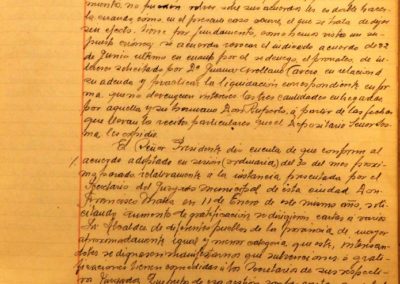 mento, no pueden volver sobre sus acuerdos los
cuando como en el presente caso ocurre, el que se trata de dejar
sin efecto, tiene por fundamento, como hemos visto un su-
puesto erróneo, se acuerda revocar el indicado acuerdo de 22
de Junio último en cuanto por el se denegó, el
solicitado por Dª Juana Arellano Carero en relación á
su adeudo y practicar la liquidación correspondiente en for-
ma, que no devenguen intereses las tres cantidades entregadas
por aquella y su hermano Don Roberto, á partir de las fechas
que llevan los recibos particulares que el Depositario Señor Cer-
ma les expidió.
El Señor Presidente dio cuenta de que conforme al
acuerdo adoptado en sesión (ordinaria) del 30 del mes proxi-
mo pasado, relativamente á la instancia presentada por el
Secretario del Juzgado municipal de esta ciudad Don
Francisco Malla en 11 de Enero de este mismo año, soli-
citando aumento de gratificación se dirigieron cartas a varios
Sres Alcaldes de diferentes pueblos de la provincia de mayor
aproximadamente igual y menor categoría que este, interesan-
doles se dignaran manifestarnos que subvenciones ó grati-
ficaciones tienen concedidas á los Secretarios de sus respecti-
vos Juzgados